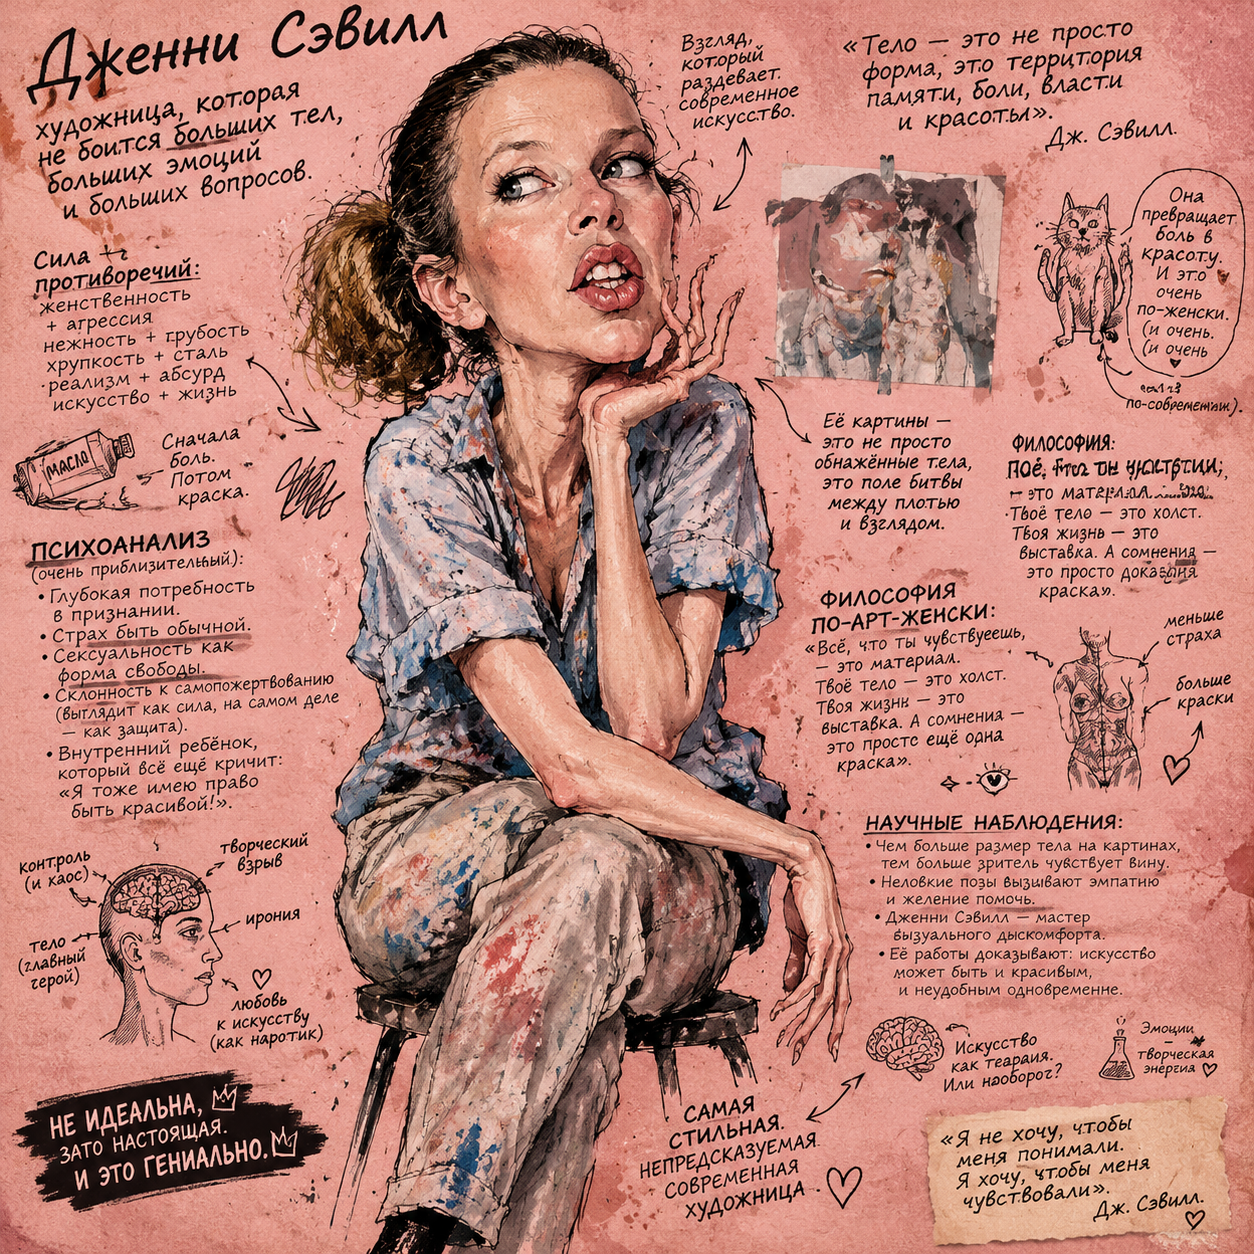 Дженни Сэвилл
художница, которая
не боится больших тел,
больших эмоций
и больших вопросов.
Взгляд,
который
раздевает.
современное
искусство.
«Тело — это не просто
форма, это территория
памяти, боли, власти
и красоты».
Дж. Сэвилл.
Она
превращает
боль в
красоту.
И это
очень
по-женски.
(и очень.
(и очень
по-современным).
Сила
противоречий:
женственность
+ агрессия
нежность + грубость
хрупкость + сталь
·реализм + абсурд
искусство + жизнь
МАСЛО
Сначала
боль.
Потом
краска.
Её картины —
это не просто
обнажённые тела,
это поле битвы
между плотью
и взглядом.
ФИЛОСОФИЯ:
— это
·Твоё тело — это холст.
Твоя жизнь — это
выставка. А сомнения —
это просто
краска».
ПСИХОАНАЛИЗ
(очень приблизительный):
• Глубокая потребность
в признании.
• Страх быть обычной.
• Сексуальность как
форма свободы.
• Склонность к самопожертвованию
(выглядит как сила, на самом деле
— как защита).
• Внутренний ребёнок,
который всё ещё кричит:
«Я тоже имею право
быть красивой!».
ФИЛОСОФИЯ
ПО-АРТ-ЖЕНСКИ:
«Всё, что ты чувствуеешь,
— это материал.
Твоё тело — это холст.
Твоя жизнь — это
выставка. А сомнения —
это простс ещё одна
краска».
меньше
страха
больше
краски
контроль
(и хаос)
творческий
взрыв
ирония
тело
(главный
герой)
любовь
к искусству
(как наротик)
НАУЧНЫЕ НАБЛЮДЕНИЯ:
• Чем больше размер тела на картинах,
тем больше зритель чувствует вину.
• Неловкие позы вызывают эмпатию
и желение помочь.
• Дженни Сэвилл — мастер
вызуального дыскомфорта.
• Её работы доказывают: искусство
может быть и красивым,
и неудобным одновременне.
Искусство
как теарапя.
Или наоборот?
Эмоции
–
творческая
энергия
НЕ ИДЕАЛЬНА,
ЗАТО НАСТОЯЩАЯ.
И ЭТО ГЕНИАЛЬНО.
САМАЯ
СТИЛЬНАЯ.
НЕПРЕДСКАЗУЕМАЯ
СОВРЕМЕННАЯ
ХУДОЖНИЦА
«Я не хочу, чтобы
меня понимали.
Я хочу, чтобы меня
чувствовали».
Дж. Сэвилл.